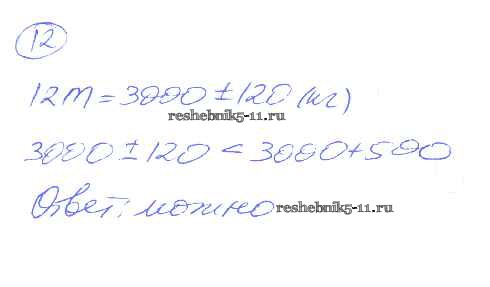 12
12m = 3000 ± 120 (кг)
reshebnik5-11.ru
3000 ± 120 < 3000 + 500
Ответ: можно
reshebnik5-11.ru